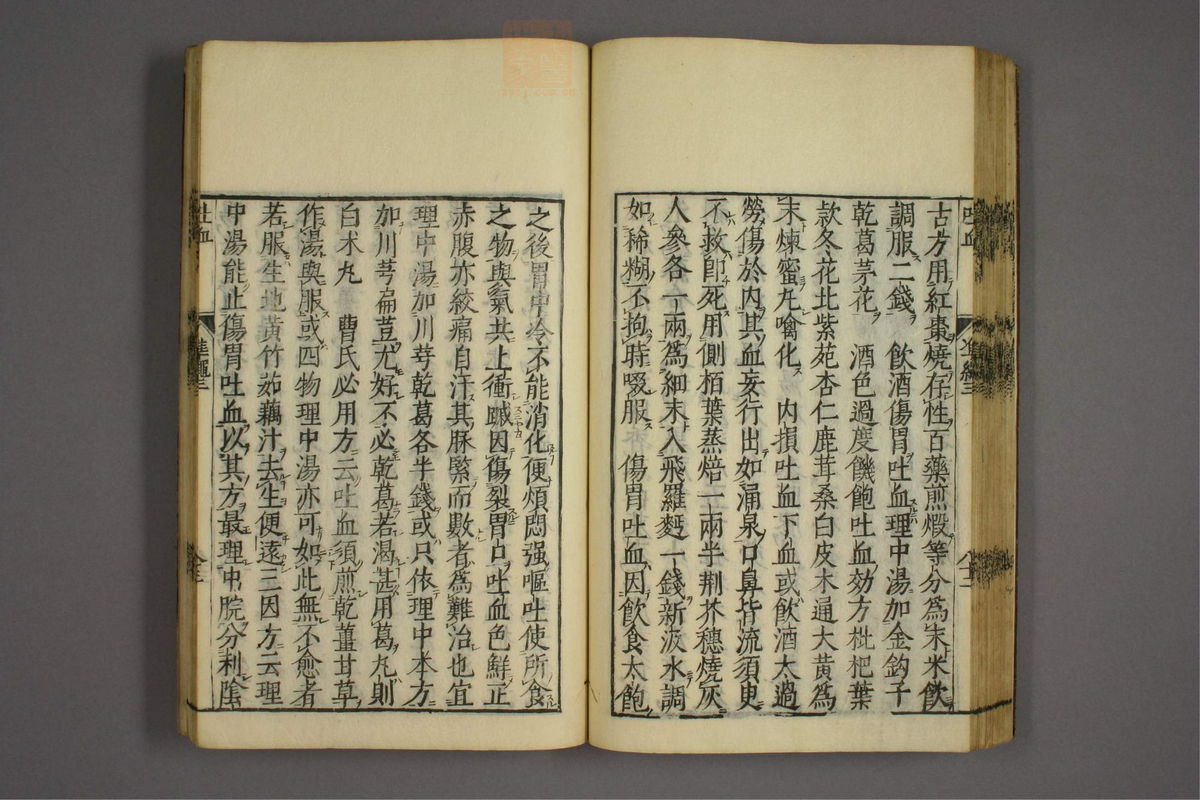 古方用紅棗燒存性百藥煎煅等分爲末米飲
調服二錢　飲酒傷胃吐血理中湯加金鈎子
乾葛茅花　酒色過度饑飽吐血効方枇杷葉
款冬花北紫菀杏仁鹿茸桑白皮木通大黄爲
末煉蜜丸噙化　内損吐血下血或飲酒太過
勞傷於内其血妄行出如涌泉口鼻皆流須臾
不救卽死用側栢葉蒸焙一兩半荆芥穗燒灰
人參各一兩爲細末入飛羅麪一錢新汲水調
如稀糊不拘時啜服　傷胃吐血因飲食太飽
之後胃中冷不能消化便煩悶强嘔吐使所食
之物與氣共上衝蹙因傷裂胃口吐血色鮮正
赤腹亦絞痛自汗其脉緊而數者爲難治也宜
理中湯加川芎乾葛各半錢或只依理中本方
加川芎扁荳尤好不必乾葛若渴甚用葛丸則
白术丸　曹氏必用方云吐血須煎乾薑甘草
作湯與服或四物理中湯亦可如此無不愈者
若服生地黄竹茹藕汁去生便遠三因方云理
中湯能止傷胃吐血以其方最理中脘分利陰
吐血
準繩三